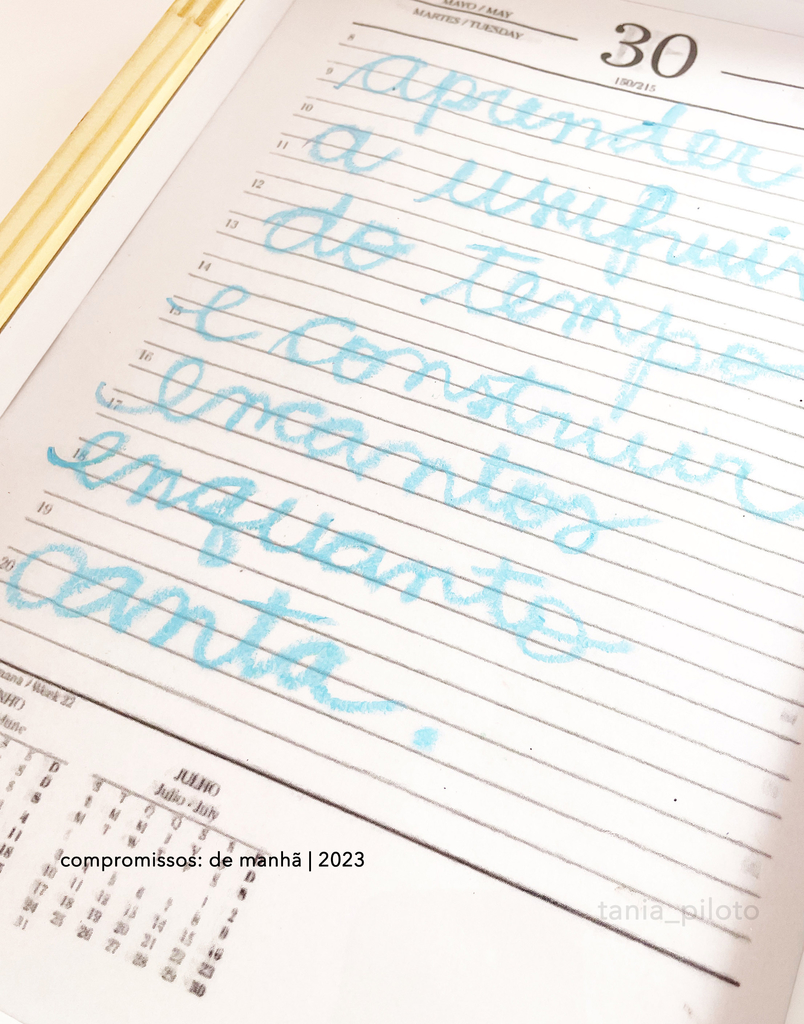 MAYO / MAY
MARTES / TUESDAY
30
150/215
8
9
10
11
12
13
14
15
16
17
18
19
20
aprender
a usufruir
do tempo
e construir
encantos
enquanto
canta.
/ Week 22
June
JULHO
Julio - July
compromissos: de manhã | 2023
tania_piloto